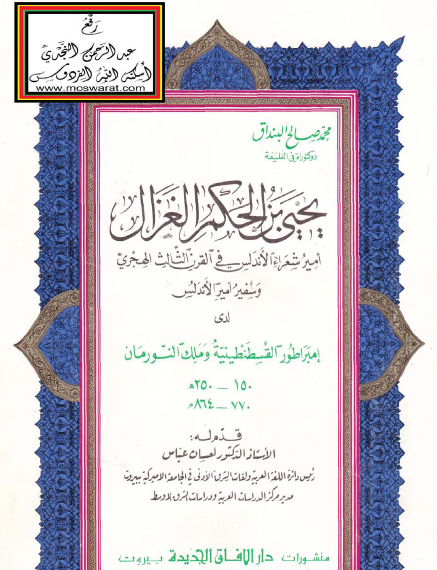 رَفعُ
عبد الرحمن النجدي
أسكنه الله الفردوس
www.moswarat.com
محمد صالح البنداق
دكتوراة في الفلسفة
يحيى بن الحكم الغزال
أمير شعراء الأندلس في القرن الثالث الهجري
وسفير أمير الأندلس
لدى
إمبراطور القسطنطينية وملك النورمان
١٥٠ — ٢٥٠ هـ
٧٧٠ — ٨٦٤ م
قدم له:
الأستاذ الدكتور احسان عباس
رئيس دائرة اللغة العربية ولغات الشرق الأدنى في الجامعة الاميركية ببيروت
مدير مركز الدراسات العربية ودراسات الشرق الاوسط
منشورات دار الآفاق الجديدة بيروت